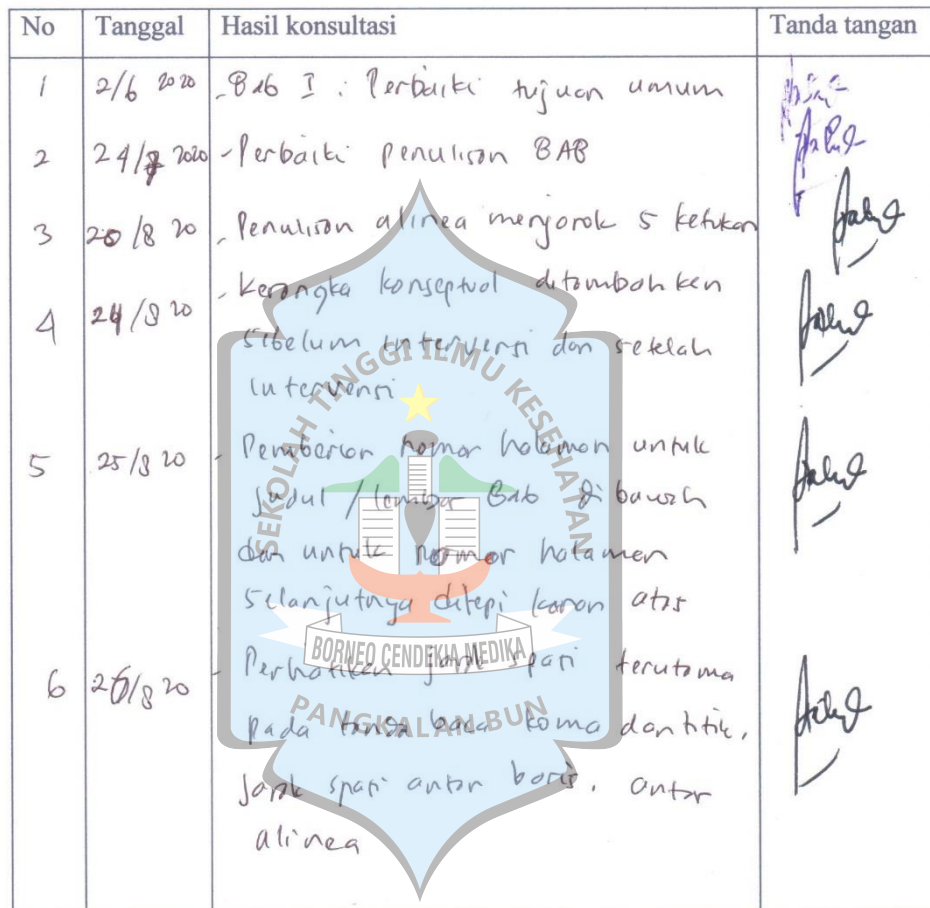 No Tanggal Hasil konsultasi Tanda tangan
1 2/6 2020 - Bab I : Perbaiki tujuan umum
2 24/7 2020 - Perbaiki penulisan BAB
3 20/8 20 - Penulisan alinea menjorok 5 ketukan
4 24/8 20 - Kerangka konseptual ditambahkan
sebelum intervensi dan setelah
intervensi
5 25/8 20 - Pemberian nomor halaman untuk
judul / lembar Bab dibawah
dan untuk nomor halaman
selanjutnya ditepi kanan atas
6 26/8 20 - Perhatikan jarak spasi terutama
pada tanda baca koma dan titik,
Jarak spasi antar baris, antar
alinea
SEKOLAH TINGGI ILMU KESEHATAN
BORNEO CENDEKIA MEDIKA
PANGKALAN BUN